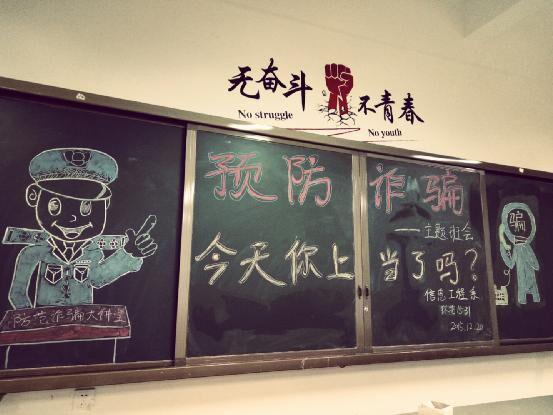 无奋斗 不青春
No struggle
No youth
预防诈骗
——主题班会
今天你上当了吗?
信息工程系
2015.12.20
防范诈骗大讲堂
骗